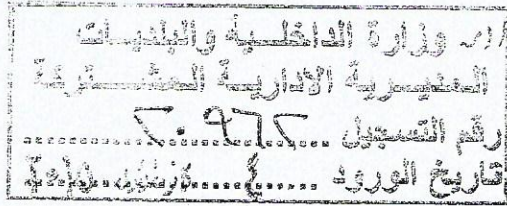 وزارة الداخلية والبلديات
المديرية الادارية المشتركة
رقم التسجيل ٢٠٩٦٢
تاريخ الورود ٤